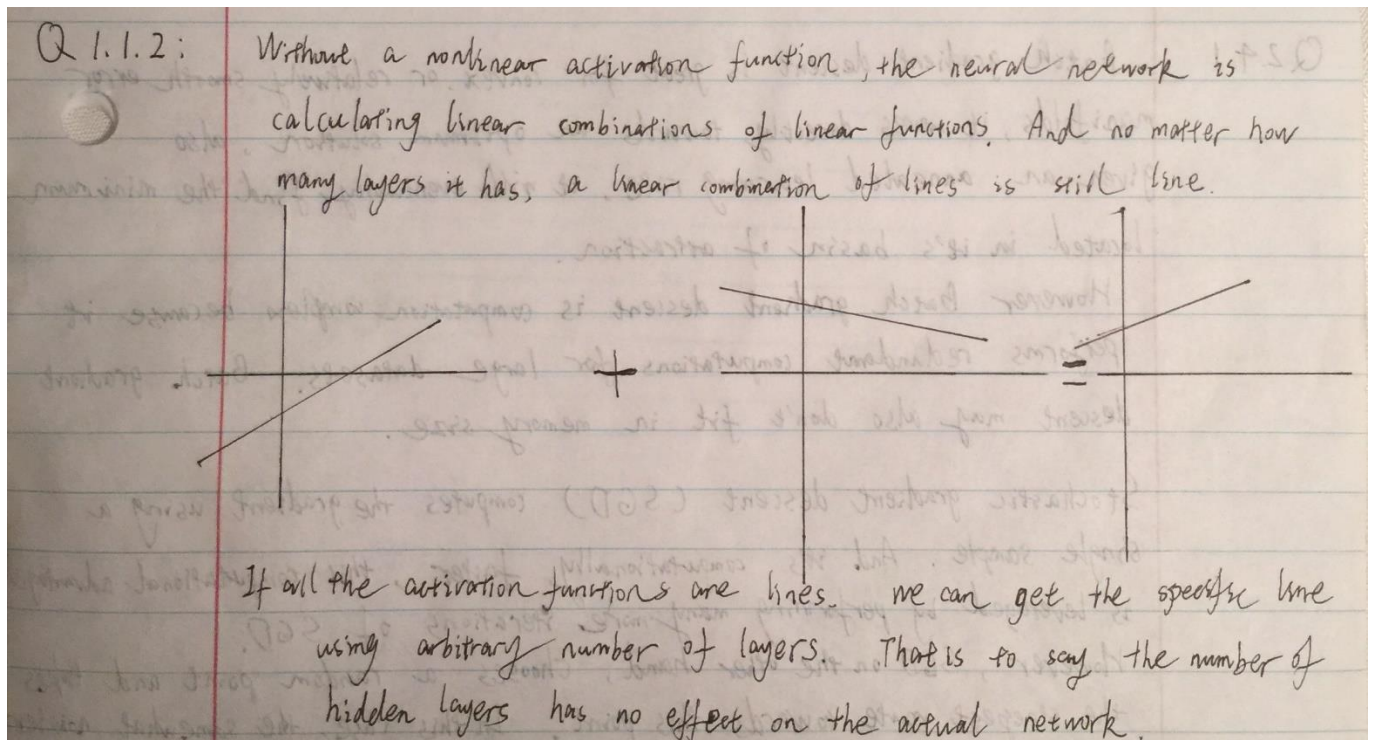 Q 1.1.2: Without a nonlinear activation function, the neural network is
calculating linear combinations of linear functions. And no matter how
many layers it has, a linear combination of lines is still line.
+ =
If all the activation functions are lines. we can get the specific line
using arbitrary number of layers. That is to say the number of
hidden layers has no effect on the actual network.